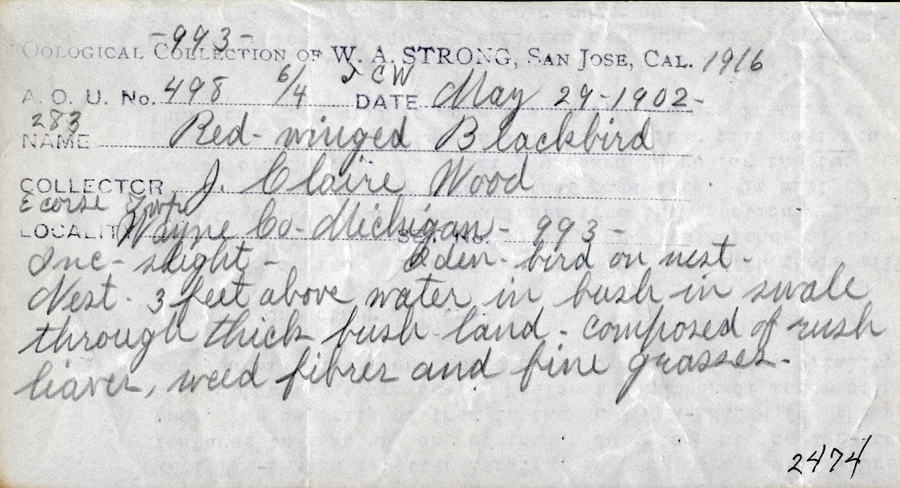 -993-
OOLOGICAL COLLECTION OF W. A. STRONG, SAN JOSE, CAL. 1916
A. O. U. No. 498 6/4 JCW DATE May 29-1902-
283
NAME Red-winged Blackbird
COLLECTOR J. Claire Wood
Ecorse Twp
LOCALITY Wayne Co-Michigan- SET No. 993-
Inc- slight- Iden- bird on nest-
Nest- 3 feet above water in bush in swale
through thick bush land- composed of rush
leaves, weed fibres and fine grasses-
2474